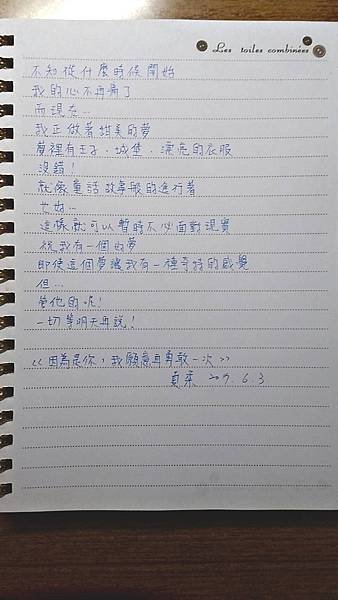 Les toiles combinées
不知從什麼時候開始
我的心不再痛了
而現在…
我正做著甜美的夢
夢裡有王子、城堡、漂亮的衣服
沒錯！
就像童話故事般的進行著
也好…
這樣就可以暫時不必面對現實
祝我有一個好夢
即使這個夢讓我有一種奇特的感覺
但…
管他的呢！
一切等明天再說！
<<因為是你，我願意再勇敢一次>>
6.3